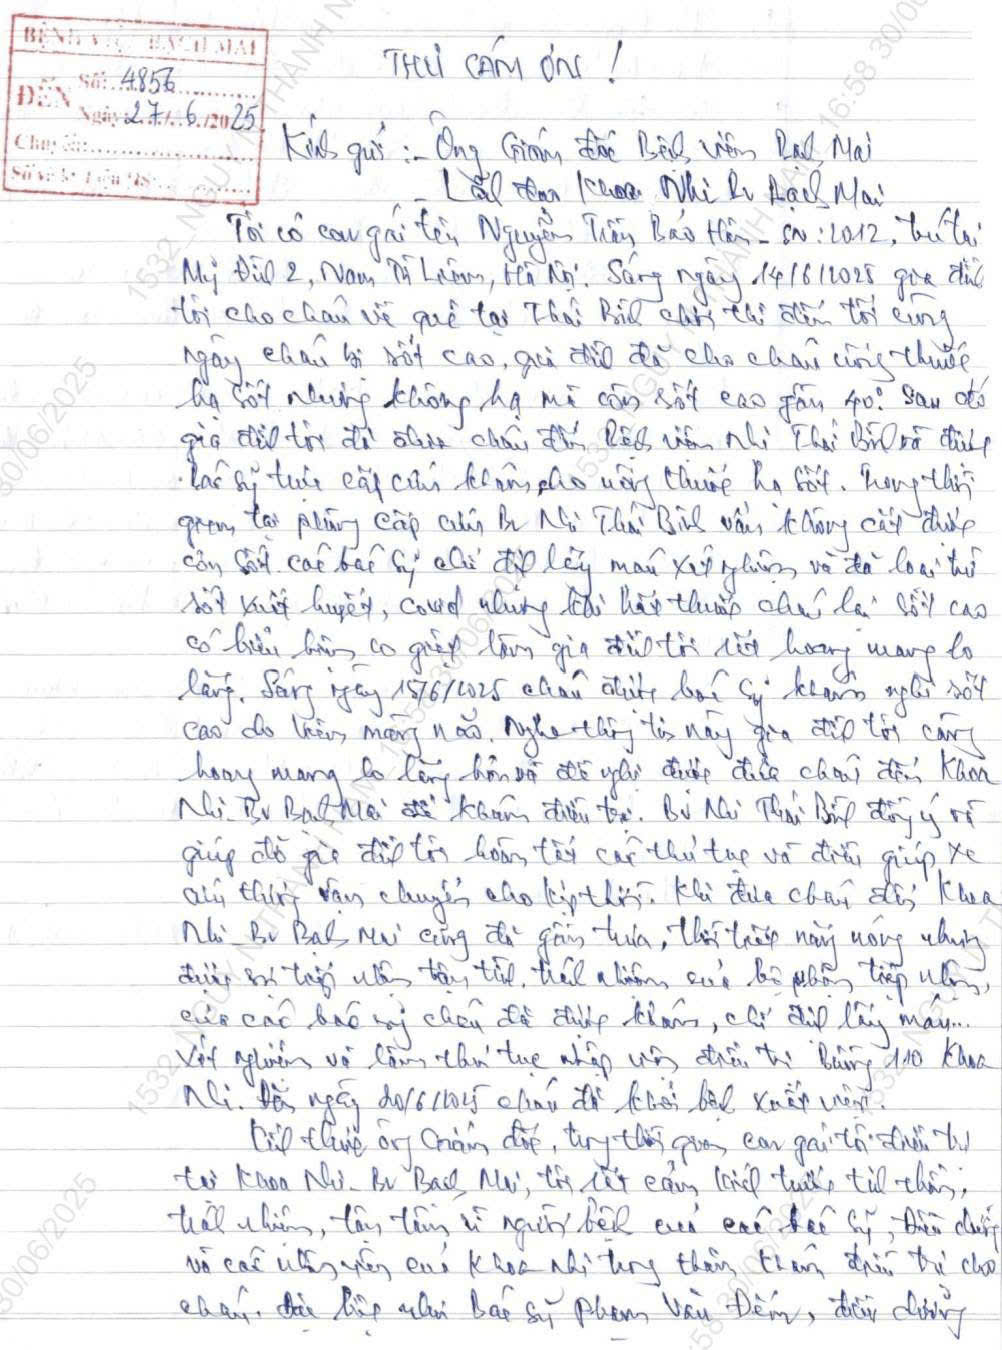 BỆNH VIỆN BẠCH MAI
ĐẾN Số: 4856
Ngày: 27/6/2025
Chuyển:
THƯ CẢM ƠN!
Kính gửi: - Ông Giám đốc Bệnh viện Bạch Mai
- Lãnh đạo Khoa Nhi Bv Bạch Mai
Tôi có con gái tên Nguyễn Trần Bảo Hân - SN: 2012, trú tại
Mỹ Đình 2, Nam Từ Liêm, Hà Nội. Sáng ngày 14/6/2025 gia đình
tôi cho cháu về quê tại Thái Bình chơi thì đến tối cùng
ngày cháu bị sốt cao, gia đình đã cho cháu uống thuốc
hạ sốt nhưng không hạ mà còn sốt cao gần 40°. Sau đó
gia đình tôi đã đưa cháu đến Bệnh viện Nhi Thái Bình và được
bác sỹ trực cấp cứu khám, cho uống thuốc hạ sốt. Trong thời
gian tại phòng cấp cứu Bv Nhi Thái Bình vẫn không cắt được
cơn sốt các bác sỹ chỉ định lấy máu xét nghiệm và đã loại trừ
sốt xuất huyết, covid nhưng khi hết thuốc cháu lại sốt cao
có biểu hiện co giật làm gia đình tôi rất hoang mang lo
lắng. Sáng ngày 15/6/2025 cháu được bác sỹ khám nghi sốt
cao do viêm màng não. Nghe thông tin này gia đình tôi càng
hoang mang lo lắng hơn và đề nghị được đưa cháu đến Khoa
Nhi - Bv Bạch Mai để khám điều trị. Bv Nhi Thái Bình đồng ý và
giúp đỡ gia đình tôi hoàn tất các thủ tục và điều giúp xe
cứu thương vận chuyển cho kịp thời. Khi đưa cháu đến Khoa
Nhi - Bv Bạch Mai cũng đã gần trưa, thời tiết nắng nóng nhưng
được sự tiếp nhận tận tình, trách nhiệm của bộ phận tiếp nhận,
của các bác sỹ cháu đã được khám, chỉ định lấy máu...
xét nghiệm và làm thủ tục nhập viện điều trị Buồng 110 Khoa
Nhi. Đến ngày 20/6/2025 cháu đã khỏi bệnh xuất viện.
Kính thưa ông Giám đốc, trong thời gian con gái tôi điều trị
tại Khoa Nhi - Bv Bạch Mai, tôi rất cảm kích trước tinh thần,
trách nhiệm, tận tâm vì người bệnh của các bác sỹ, Điều dưỡng
và các nhân viên của Khoa nhi trong thăm khám điều trị cho
cháu. Đặc biệt như Bác sĩ Phạm Văn Đếm, điều dưỡng